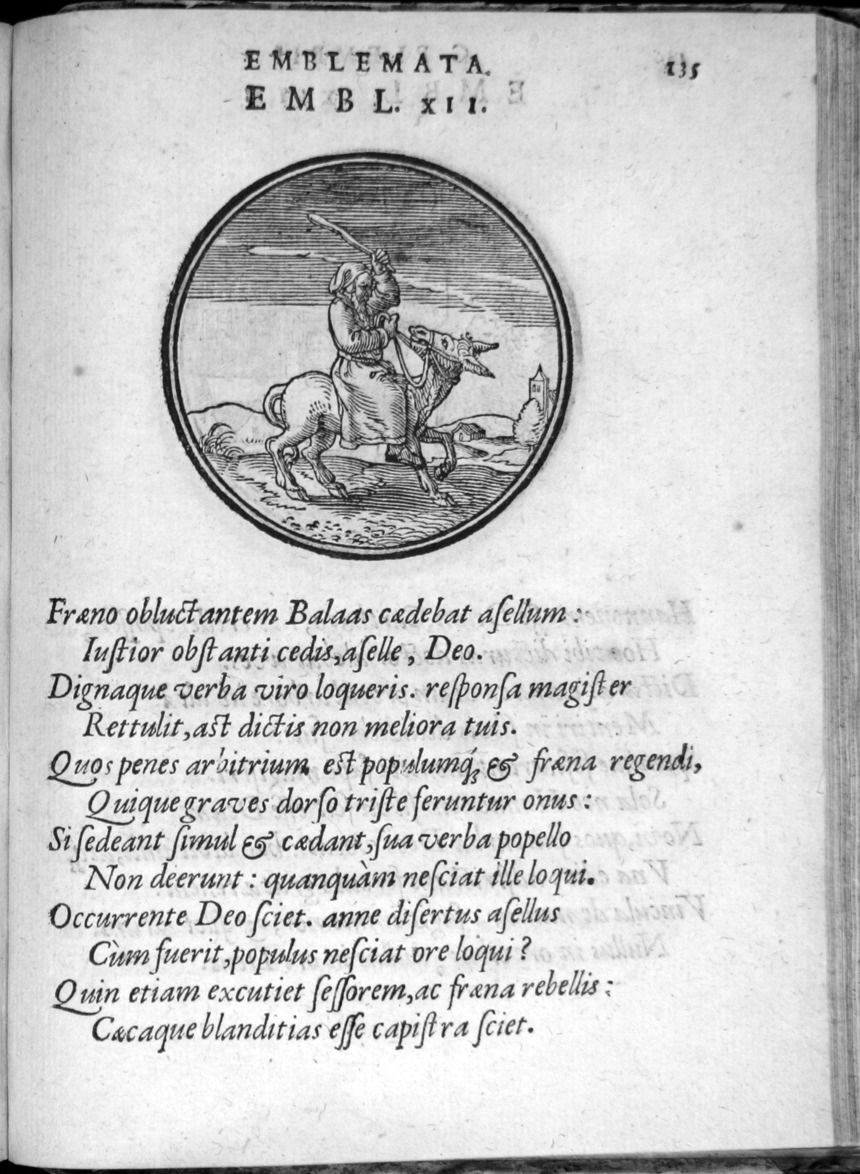 EMBLEMATA.
135
EMBL. XII.
Fræno obluctantem Balaas cædebat aſellum:
Iuſtior obſtanti cedis, aſelle, Deo.
Dignaque verba viro loqueris. reſponſa magiſter
Rettulit, aſt dictis non meliora tuis.
Quos penes arbitrium est populumq́; & fræna regendi,
Quique graves dorſo triſte feruntur onus:
Si ſedeant ſimul & cædant, ſua verba popello
Non deerunt: quanquàm neſciat ille loqui.
Occurrente Deo ſciet. anne diſertus aſellus
Cùm fuerit, populus neſciat ore loqui?
Quin etiam excutiet ſeſſorem, ac fræna rebellis:
Cæcaque blanditias eſſe capiſtra ſciet.